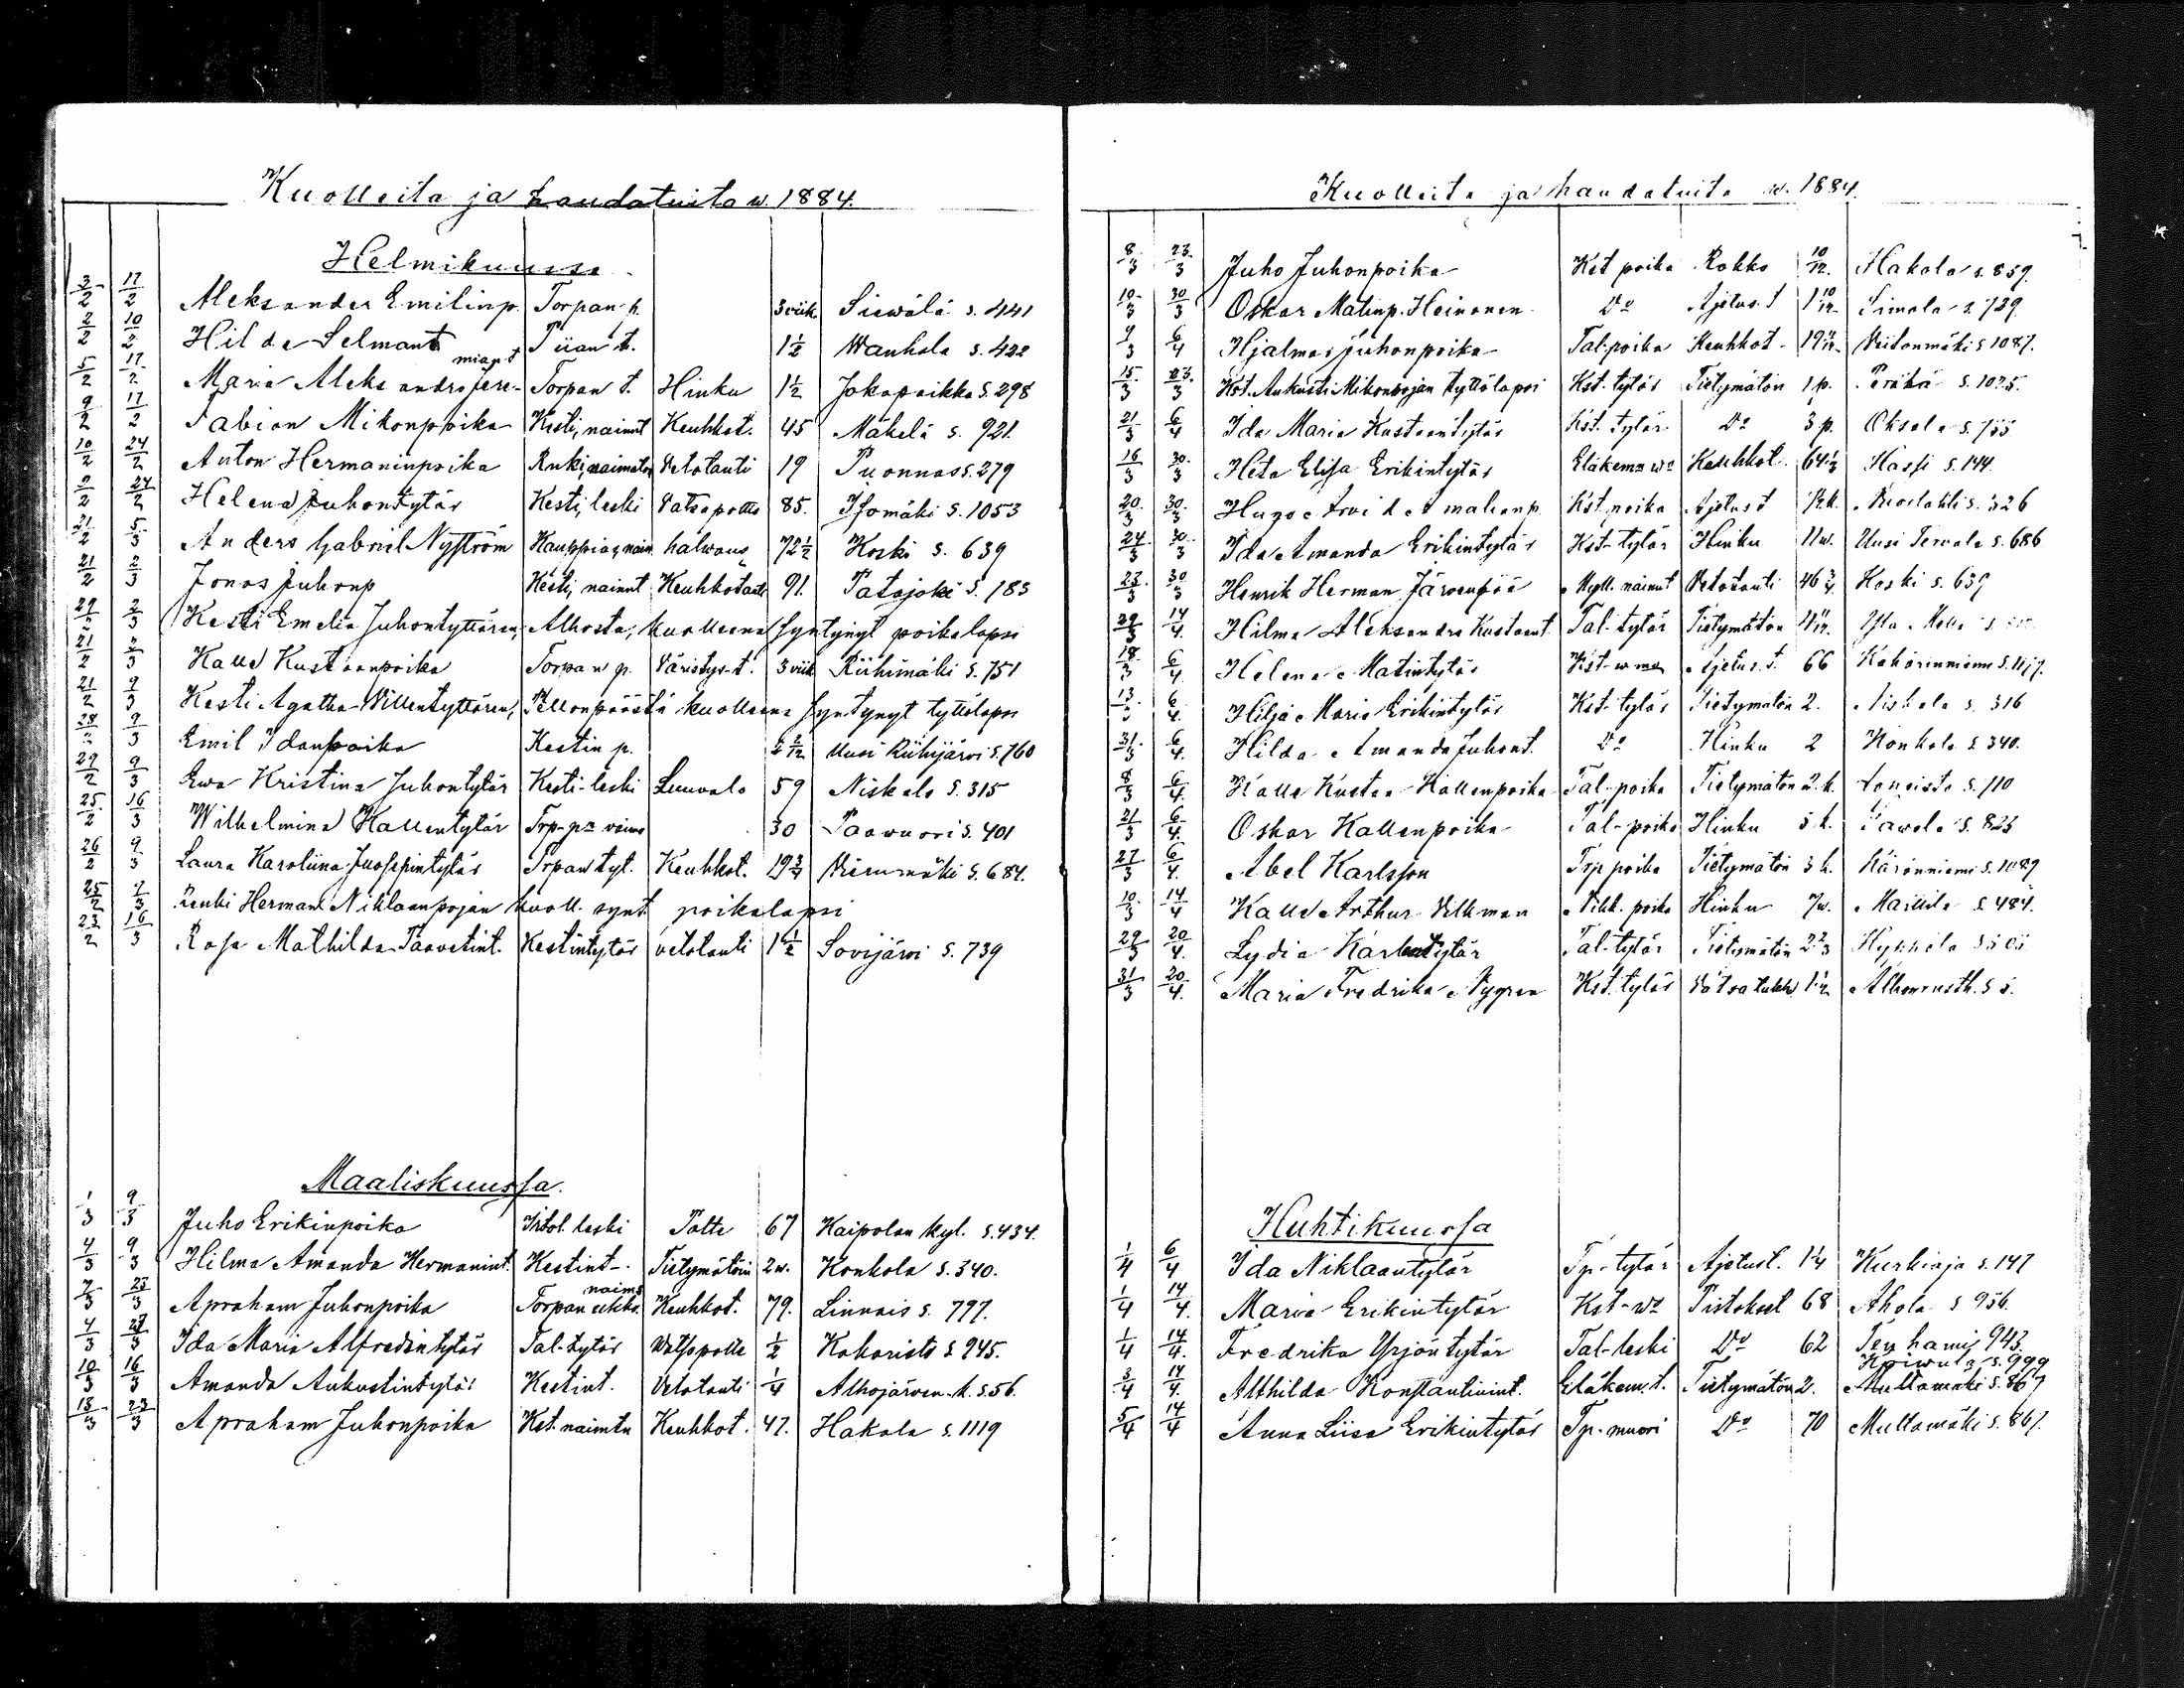 Kuolleita ja haudatuita w. 1884.
Helmikuussa
3/2 17/2 Aleksander Emilinp. Torpan p. 3 viik. Siewälä s. 441
2/2 10/2 Hilda Selmant. Piian t. 1 1/2 Wanhala s. 422
miant
5/2 17/2 Maria Aleksandra Jere- Torpan t. Hinku 1 1/2 Jokapaikka s. 298
9/2 17/2 Fabian Mikonpoika Kesti, nainut Keuhkot. 45 Mäkelä s. 921
10/2 24/2 Anton Hermaninpoika Renki, naimaton Vetotauti 19 Puonnas s. 279
9/2 24/2 Helena Juhontytär Kesti, leski Vatsapoltto 85. Isomäki s. 1053
21/2 5/3 Anders Gabriel Nyström Kauppias, nain. halwaus 72 1/2 Koski s. 639
21/2 2/3 Jonas Juhonp Kesti, nainut Keuhkotauti 91. Patajoki s. 183
29/2 2/3 Kesti Emelia Juhontyttären, Alhosta, kuolleena syntynyt poikalapsi
21/2 2/3 Kalle Kustaanpoika Torpan p. Väristys-t. 3 viik Riihimäki s. 751
21/2 9/3 Kesti Agatha Villentyttären, Pellonpäästä kuolleena syntynyt tyttölapsi
28/2 9/3 Emil Idanpoika Kestin p. 2/12 Uusi Riihijärvi s. 760
29/2 9/3 Ewa Kristina Juhontytär Kesti-leski Luuvalo 59 Niskala s. 315
25/2 16/3 Wilhelmina Kallentytär Trp-pn vaimo 30 Paawuori s. 401
26/2 9/3 Laura Karoliina Juosepintytär Trpan tyt. Keuhkot. 19 3/4 s. 684.
25/2 2/3 Renki Herman Niklaanpojan kuoll. synt. poikalapsi
23/2 16/3 Rosa Mathilda Taavetint. Kestintytär vetotauti 1 1/2 Sovijärvi s. 739
Maaliskuussa.
1/3 9/3 Juho Erikinpoika leski Polte 67 Kaipolan kyl. s. 434.
4/3 9/3 Hilma Amanda Hermanint. Kestint-. Tietymätöin 2 w. Konkola s. 340.
naima
7/3 23/3 Apraham Juhonpoika Torpan ukko. Keuhkot. 79. Linnais s. 797.
4/3 27/3 Ida Maria Alfredintytär Tal-tytär Watsapolte 1/2 Kokoristo s. 945.
10/3 16/3 Amanda Aukustintytär Kestint. Vetotauti 1/4 Alhojärwen-k. s. 56.
13/3 23/3 Apraham Juhonpoika Kst. naimtu Keuhkot. 47. Hakala s. 1119
Kuolleita ja haudatuita w. 1884.
8/3 23/3 Juho Juhonpoika Kst poika Rokko 10/12. Hakola s. 859.
10/3 30/3 Oskar Matinp. Heinonen Do Ajetus.t 1 10/12 Simola s. 729.
9/3 6/4 Hjalmar Juhonpoika Tal:poika Keuhkot- 19 Veitonmäki s 1087.
15/3 23/3 Kst. Aukusti Mikonpojan tyttölapsi Kst. tytär Tietymätön 1 p. Peräkä s. 1025.
21/3 6/4 Ida Maria Kustaantytär Kst. tytär Do 3 p. Oksala s. 755
16/3 30/3 Heta Elisa Erikintytär Eläkemn wo Keuhkot. 64 1/2 Hassi s. 144.
20/3 30/3 Hugo Arvid Amalianp. Kst. poika Ajetus t s. 326
24/3 30/3 Ida Amanda Erikintytär Kst-tytär Hinku 11 w. Uusi Terwala s. 686
23/3 30/3 Henrik Herman Järvenpää Myll. nainut Vetotauti 46 3/4 Koski s. 639
29/3 14/4. Hilma Aleksandra Kustaant. Tal-tytär Tietymätön
18/3 6/4. Helena Matintytär Kst-w Ajetus.t. 66
13/3 6/4. Hilja Maria Erikintytär Kst-tytär Tietymätön 2. Niskala s. 316
31/3 6/4. Hilda Amanda Juhont. Do Hinku 2 Konkola s. 340.
8/3 6/4. Kalle Kustaa Kallenpoika Tal-poika Tietymätön 2. k. s. 110
21/3 6/4. Oskar Kallenpoika Tal-poika Hinku 5 k. Pawola s. 825
27/3 6/4. Abel Karlsson Trp poika Tietymätön 3 k. Käränniemi s. 1029
10/3 14/4 Kalle Arthur Vilkman poika Hinku 7 w. Mattila s. 484.
29/3 20/4. Lydia Karlentytär Tal-tytär Tietymätön 2 2/3 Hyppölä
31/3 20/4. Maria Fredrika Nygren Kst. tytär
Huhtikuussa
1/4 6/4 Ida Niklaantytär Tp-tytär Ajetust. 1 1/4 Kurkioja s. 147
1/4 14/4. Maria Erikintytär Kst-wo Pistokset 68 Ahola s 956.
1/4 14/4. Fredrika Yrjöntytär Tal-leski Do 62 Tenhami 943.
Koiwula s. 999
3/4 14/4. Althilda Konstantinint. Eläkem.t. Tietymätön 2. Multamäki s. 867
5/4 14/4 Anna Liisa Erikintytär Tp.-muori Do 70 Multamäki s. 867.